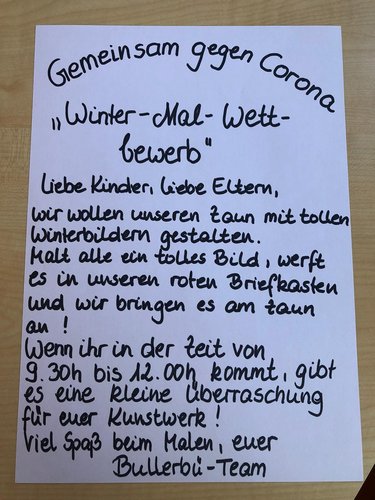 Gemeinsam gegen Corona
„Winter-Mal-Wett-
bewerb"
Liebe Kinder, liebe Eltern,
wir wollen unseren Zaun mit tollen
Winterbildern gestalten.
Malt alle ein tolles Bild, werft
es in unseren roten Briefkasten
und wir bringen es am Zaun
an!
Wenn ihr in der Zeit von
9.30h bis 12.00h kommt, gibt
es eine kleine Überraschung
für euer Kunstwerk!
Viel Spaß beim Malen, euer
Bullerbü-Team